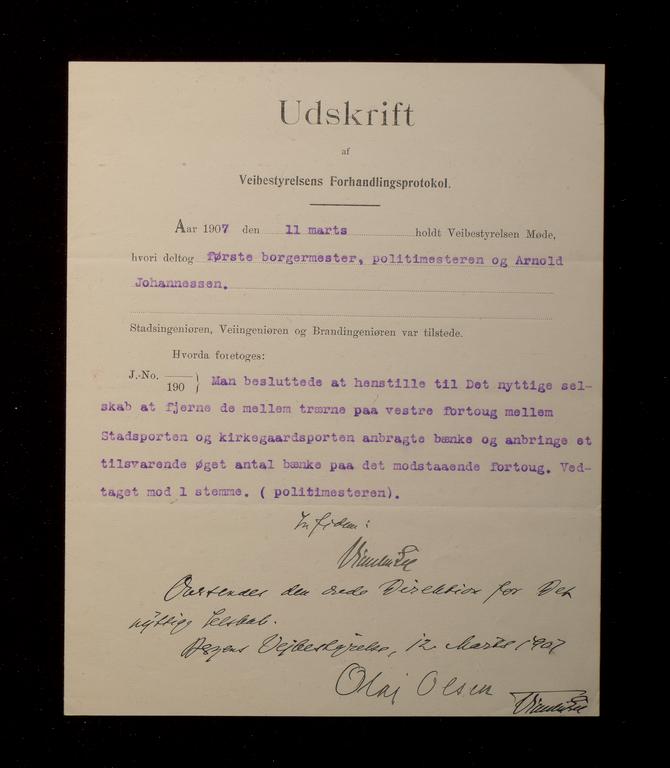 Udskrift
af
Veibestyrelsens Forhandlingsprotokol.
Aar 1907 den 11 marts holdt Veibestyrelsen Møde,
hvori deltog første borgermester, politimesteren og Arnold
Johannessen.
Stadsingeniøren, Veiingeniøren og Brandingeniøren var tilstede.
Hvorda foretoges:
J.-No.
190 } Man besluttede at henstille til Det nyttige sel-
skab at fjerne de mellem trærne paa vestre fortoug mellem
Stadsporten og kirkegaardsporten anbragte bænke og anbringe et
tilsvarende øget antal bænke paa det modstaaende fortoug. Ved-
taget mod 1 stemme. ( politimesteren).
In fidem:
Oversendes den ærede Direktion for Det
nyttige Selskab.
Bergens Vejbestyrelse, 12 Marts 1907
Olaj Olsen